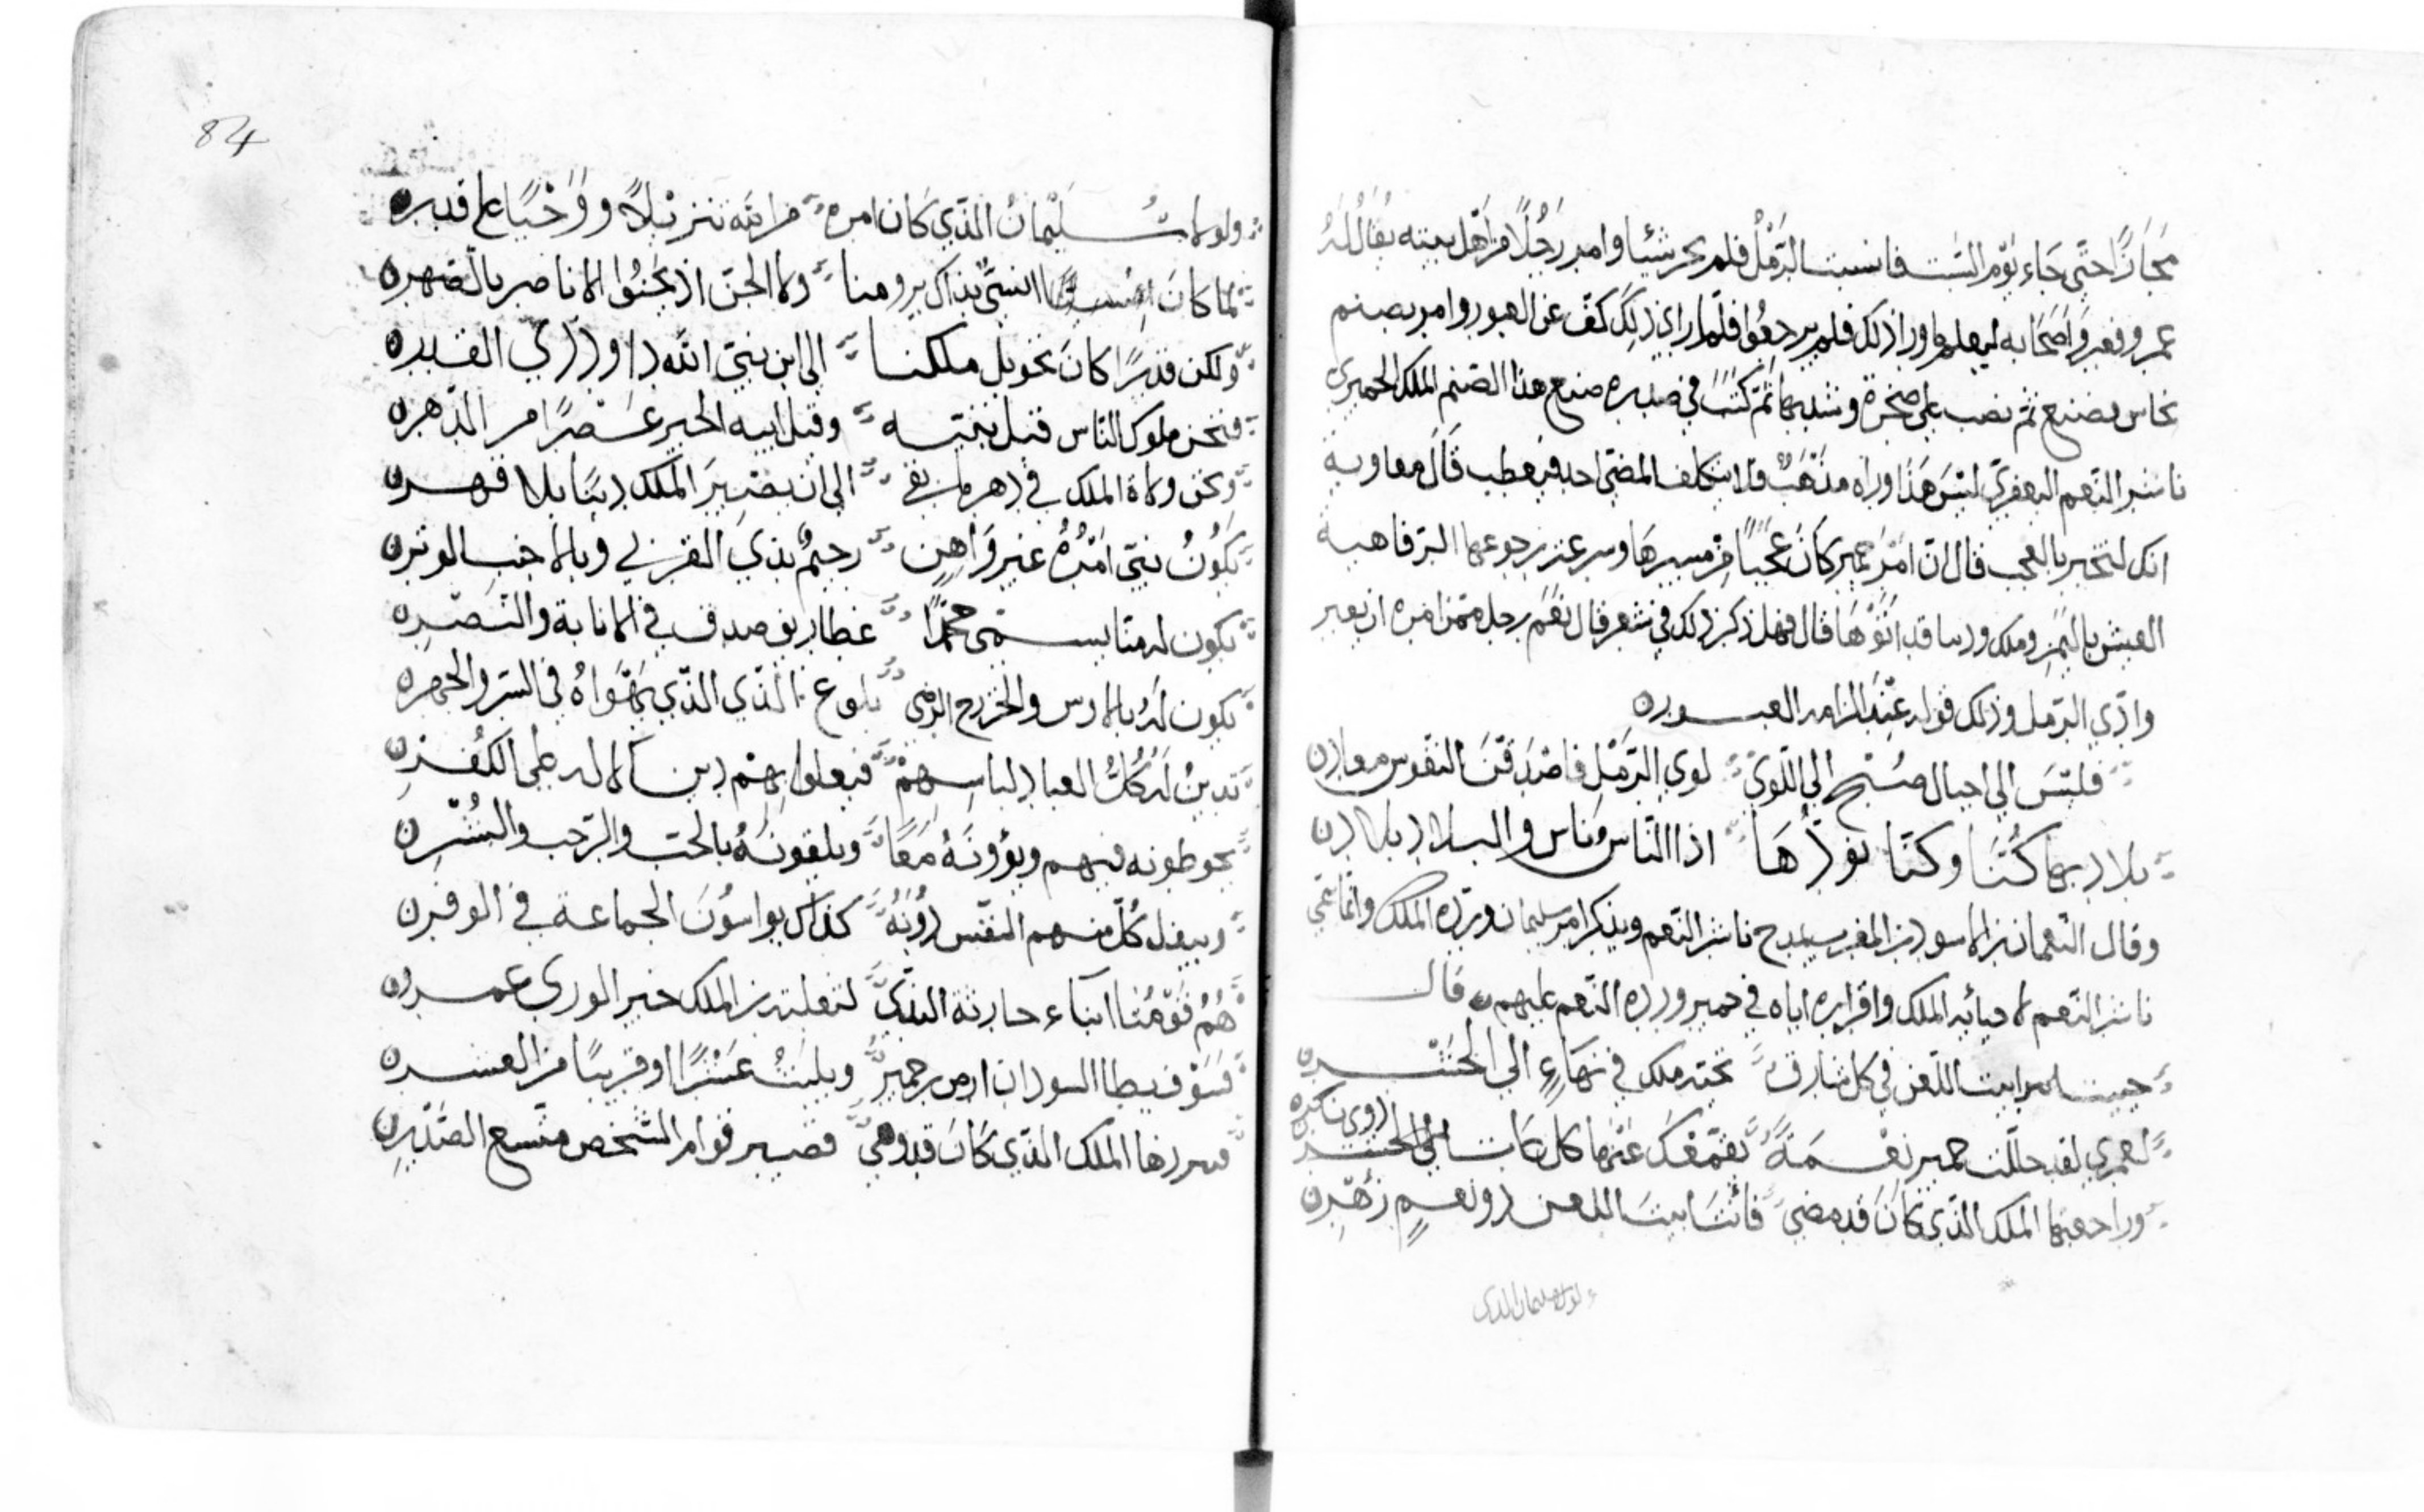 مجازًا حتى جاء يوم السبت فانسبت الرمل فلم يجر شيئا وامر رجلًا من اهل بيته يقال له
عمرو فعبر واصحابه ليعلم ما ورا ذلك فلم يرجعوا فلما راى ذلك كف عن العبور وامر بصنم
نحاس فصنع ثم نصب على صخرة وشد بها ثم كتب في صدره صنع هذا الصنم الملك الحميري
ناشر النعم اليعفري ليس هذا وراه مذهبٌ فلا يتكلف المضي احد فيعطب قال معاوية
انك لتخبر بالعجب قال ان امر حمير كان عجبًا من مسيرها وسرعة رجوعها الرفاهية
العيش باليمن وملك ورسا قد اثوها قال فهل ذكر ذلك في شعر قال نعم رجل ممن امره ان يعبر
وادي الرمل وذلك قوله عند العبور
فليس الي اجبال صبح الي اللوى لوى الرمل فاصدقن النفوس معاد
بلاد بها كنا وكنا نودها اذ الناس ناس والبلاد بلاد
وقال النعمان بن الاسود بن المغرب يمدح ناشر النعم ويذكر امر سليمان ورده الملك وانما سمي
ناشر النعم لاحيائه الملك واقراره اياه في حمير ورده النعم عليهم قال
ابيت اللعن في كل شارق تحته ملك في نماء الى الحشر
لعمري لقد جللت حمير نعمة
وراجعتها الملك الذي كان قد مضى فانت ابيت اللعن ذو نعم زهر
ولولا سليمان الذي
84
ولولا سليمان الذي كان امره من الله تنزيلًا ووحيًا على قدر
لما كان انسيٌّ بذاك يرومنا ولا الجن اذ يجنوا الانا صر بالصهر
ولكن قدرًا كان تحويل ملكنا الى ابن نبي الله داود ذي القدر
فنحن ملوك الناس قبل نبيه وقبل ابيه الحبر عصرًا من الدهر
ونحن ولاة الملك في دهر ما بقي الى ان يصير الملك دينًا بلا قهر
يكون نبي امره غير واهن رحيم بذي القربى وبالاجنب الوتر
يكون له منا يسمى محمدًا غطاريف صدق في الانابة والنصر
يكون له بالاوس والخزرج الرضى بلوغ الذي الذي يهواه في السر والجهر
تدين له كل العباد لباسهم فيعلوا بهم دين الاله على الكفر
يحوطونه فيهم ويؤونه معًا ويلقونه بالحب والرحب والبشر
ويبذل كل منهم النفس دونه كذاك يواسون الجماعة في الوفر
هم قومنا ابناء حارثة الندى لثعلبة بن الملك خير الورى عمرو
فسوف يطا السودان ارض حمير ويلبث عشرًا او قريبًا من العشر
الملك الذي كان قد وهى فصير قوام الشخص متسع الصدر